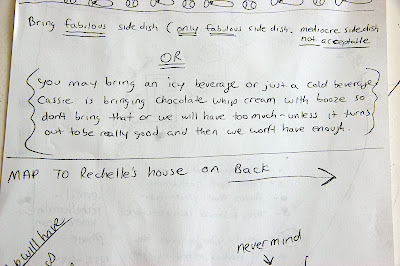 Bring fabulous side dish (only fabulous side dish. mediocre side dish
not acceptable
OR
you may bring an icy beverage or just a cold beverage
Cassie is bringing chocolate whip cream with booze so
don't bring that or we will have too much - unless it turns
out to be really good and then we won't have enough.
MAP TO Rechelle's house on Back
will have
nevermind